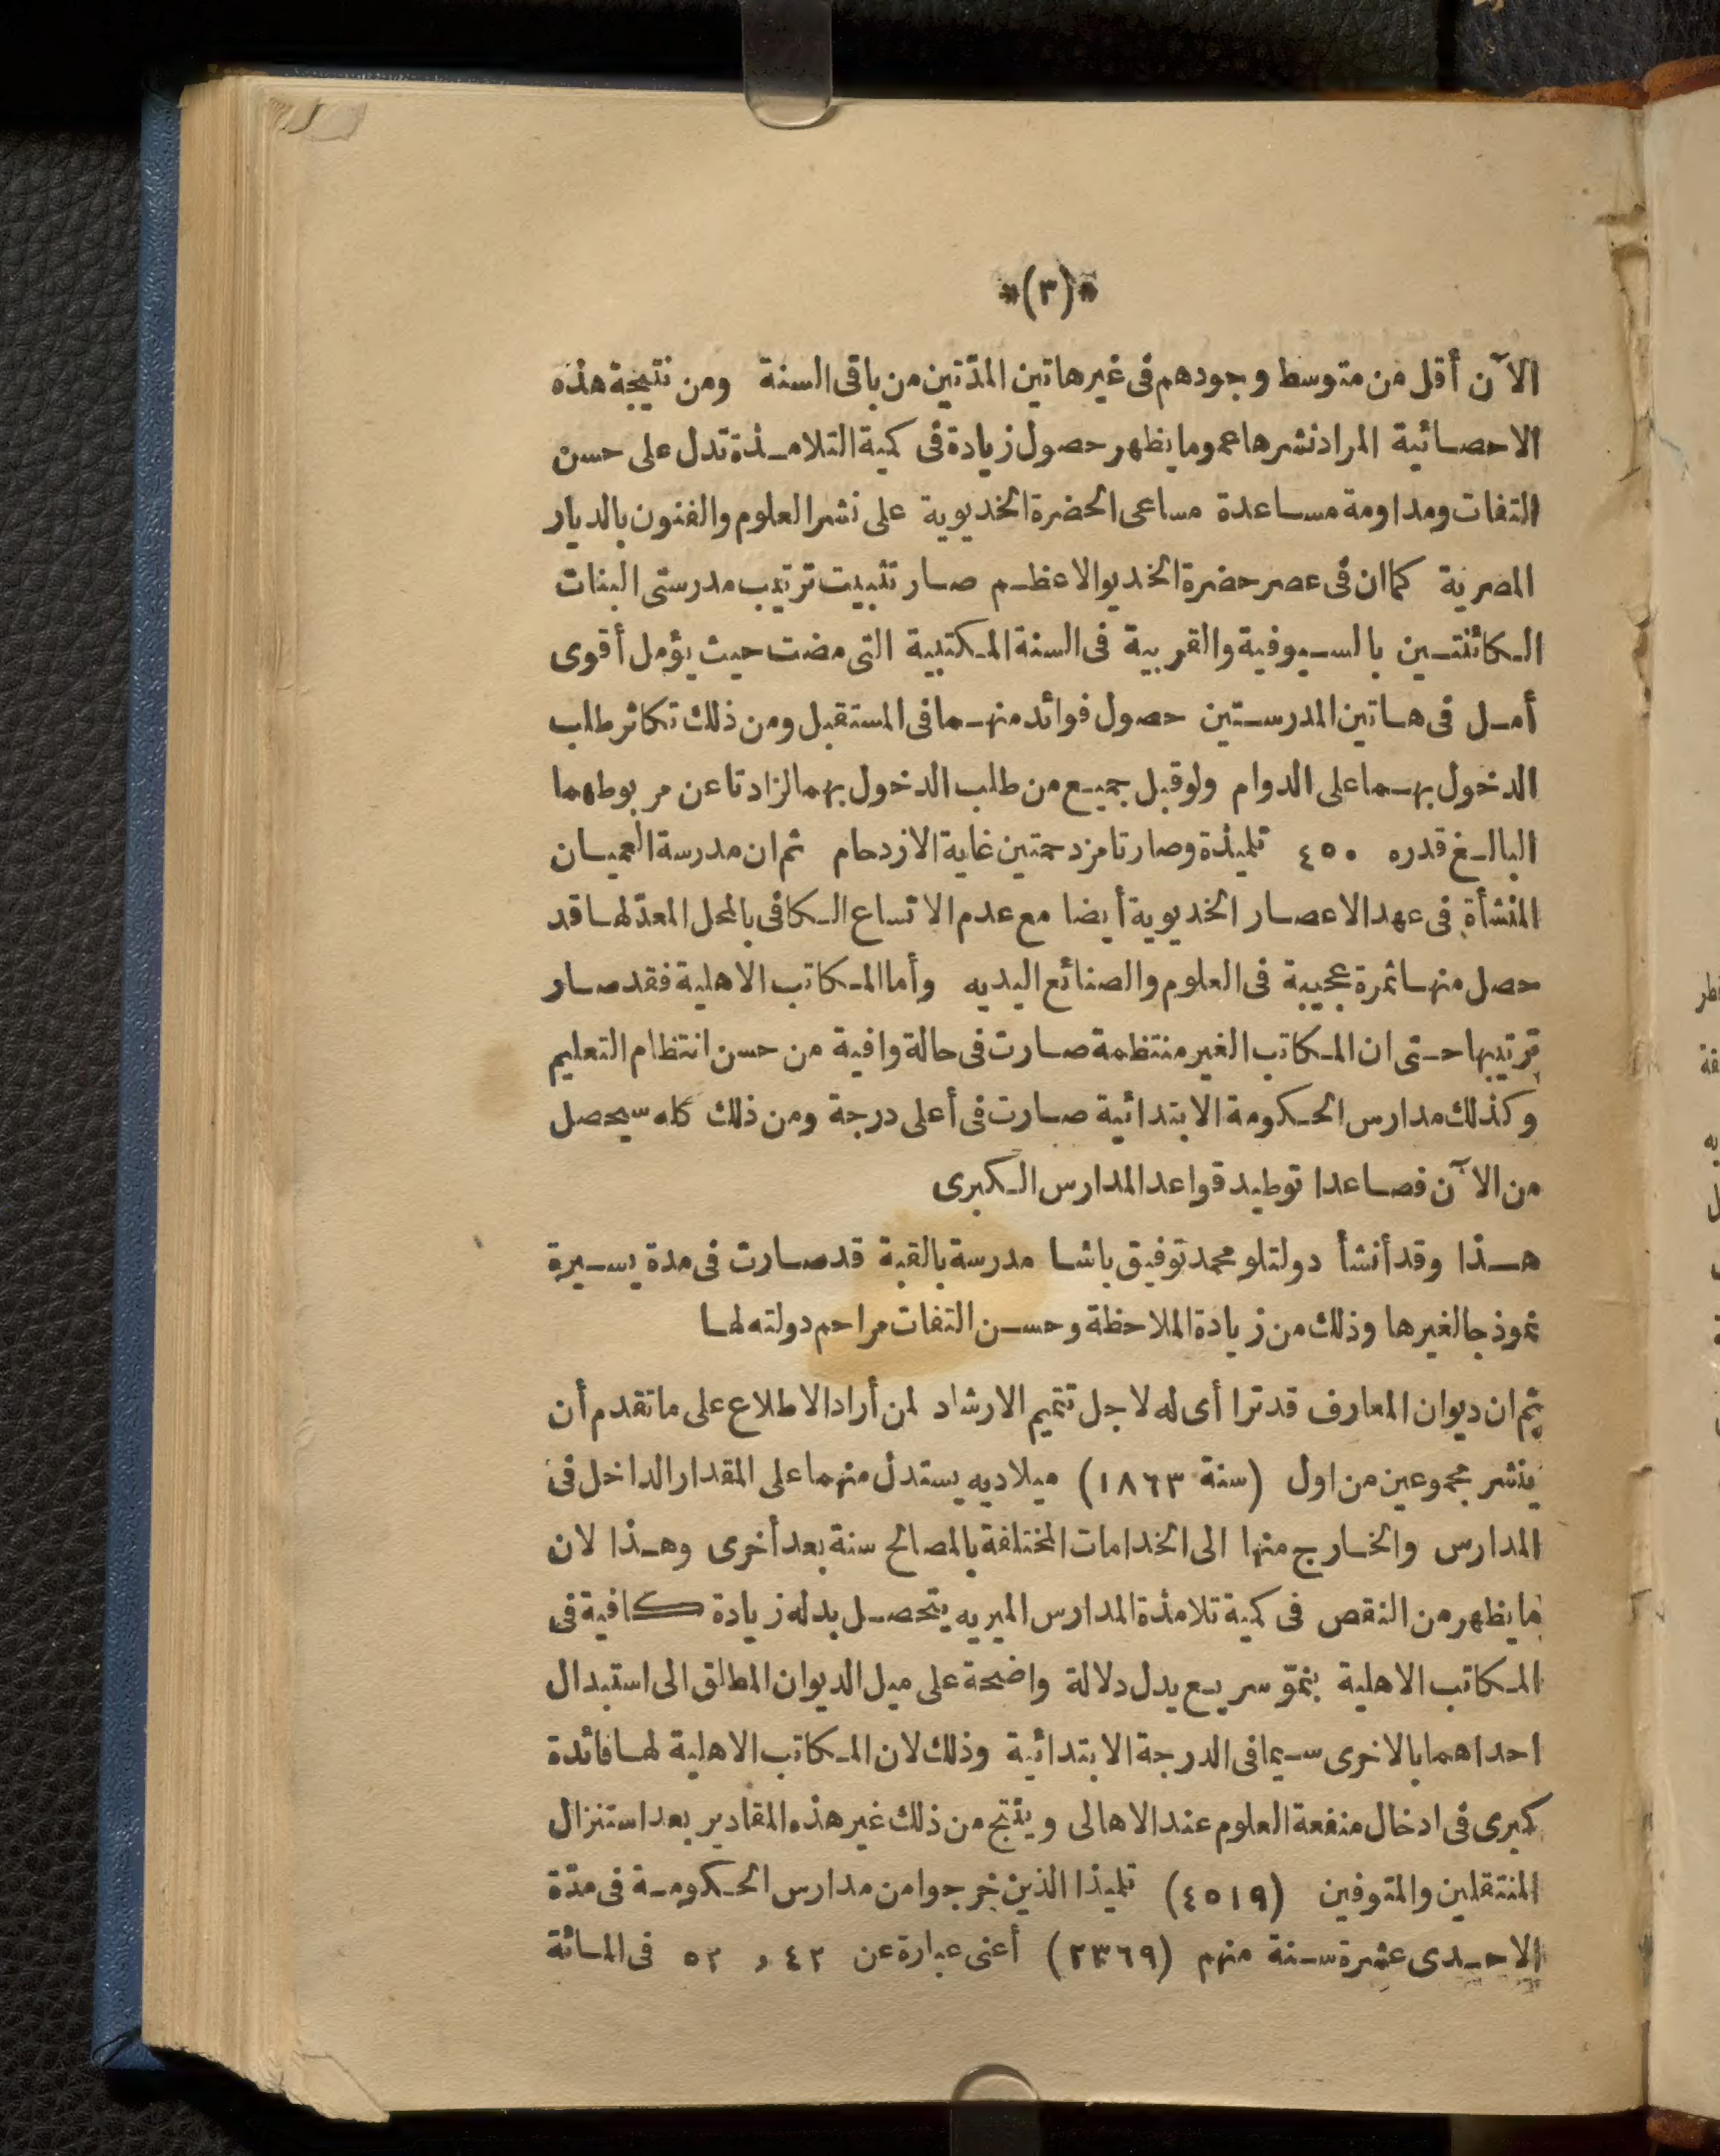 *(٣)*
الآن أقل من متوسط وجودهم فى غير هاتين المدّتين من باقى السنة ومن نتيجة هذه
الاحصائية المراد نشرها عموما يظهر حصول زيادة فى كمية التلامذة تدل على حسن
التفات ومداومة مساعدة مساعى الحضرة الخديوية على نشر العلوم والفنون بالديار
المصرية كما ان فى عصر حضرة الخديو الاعظم صار تثبيت ترتيب مدرستى البنات
الكائنتين بالسيوفية والقربية فى السنة المكتبية التى مضت حيث يؤمل أقوى
أمل فى هاتين المدرستين حصول فوائد منهما فى المستقبل ومن ذلك تكاثر طلب
الدخول بهما على الدوام ولو قبل جميع من طلب الدخول بهما لزادتا عن مربوطهما
البالغ قدره ٤٥٠ تلميذة وصارتا مزدحمتين غاية الازدحام ثم ان مدرسة العميان
المنشأة فى عهد الاعصار الخديوية أيضا مع عدم الاتساع الكافى بالمحل المعدّ لها قد
حصل منها ثمرة عجيبة فى العلوم والصنائع اليديه وأما المكاتب الاهلية فقد صار
ترتيبها حتى ان المكاتب الغير منتظمة صارت فى حالة وافية من حسن انتظام التعليم
وكذلك مدارس الحكومة الابتدائية صارت فى أعلى درجة ومن ذلك كله سيحصل
من الآن فصاعدا توطيد قواعد المدارس الكبرى
هذا وقد أنشأ دولتلو محمد توفيق باشا مدرسة بالقبة قد صارت فى مدة يسيرة
نموذجا لغيرها وذلك من زيادة الملاحظة وحسن التفات مراحم دولته لها
ثم ان ديوان المعارف قد ترا أى له لاجل تتميم الارشاد لمن أراد الاطلاع على ما تقدم أن
ينشر مجموعين من اول (سنة ١٨٦٣) ميلاديه يستدل منهما على المقدار الداخل فى
المدارس والخارج منها الى الخدامات المختلفة بالمصالح سنة بعد أخرى وهذا لان
ما يظهر من النقص فى كمية تلامذة المدارس الميريه يتحصل بدله زيادة كافية فى
المكاتب الاهلية بنموّ سريع يدل دلالة واضحة على ميل الديوان المطلق الى استبدال
احداهما بالاخرى سيما فى الدرجة الابتدائية وذلك لان المكاتب الاهلية لها فائدة
كبرى فى ادخال منفعة العلوم عند الاهالى وينتج من ذلك غير هذه المقادير بعد استنزال
المنتقلين والمتوفين (٤٥١٩) تلميذا الذين خرجوا من مدارس الحكومة فى مدّة
الاحدى عشرة سنة منهم (٢٣٦٩) أعنى عبارة عن ٤٢ و ٥٢ فى المائة